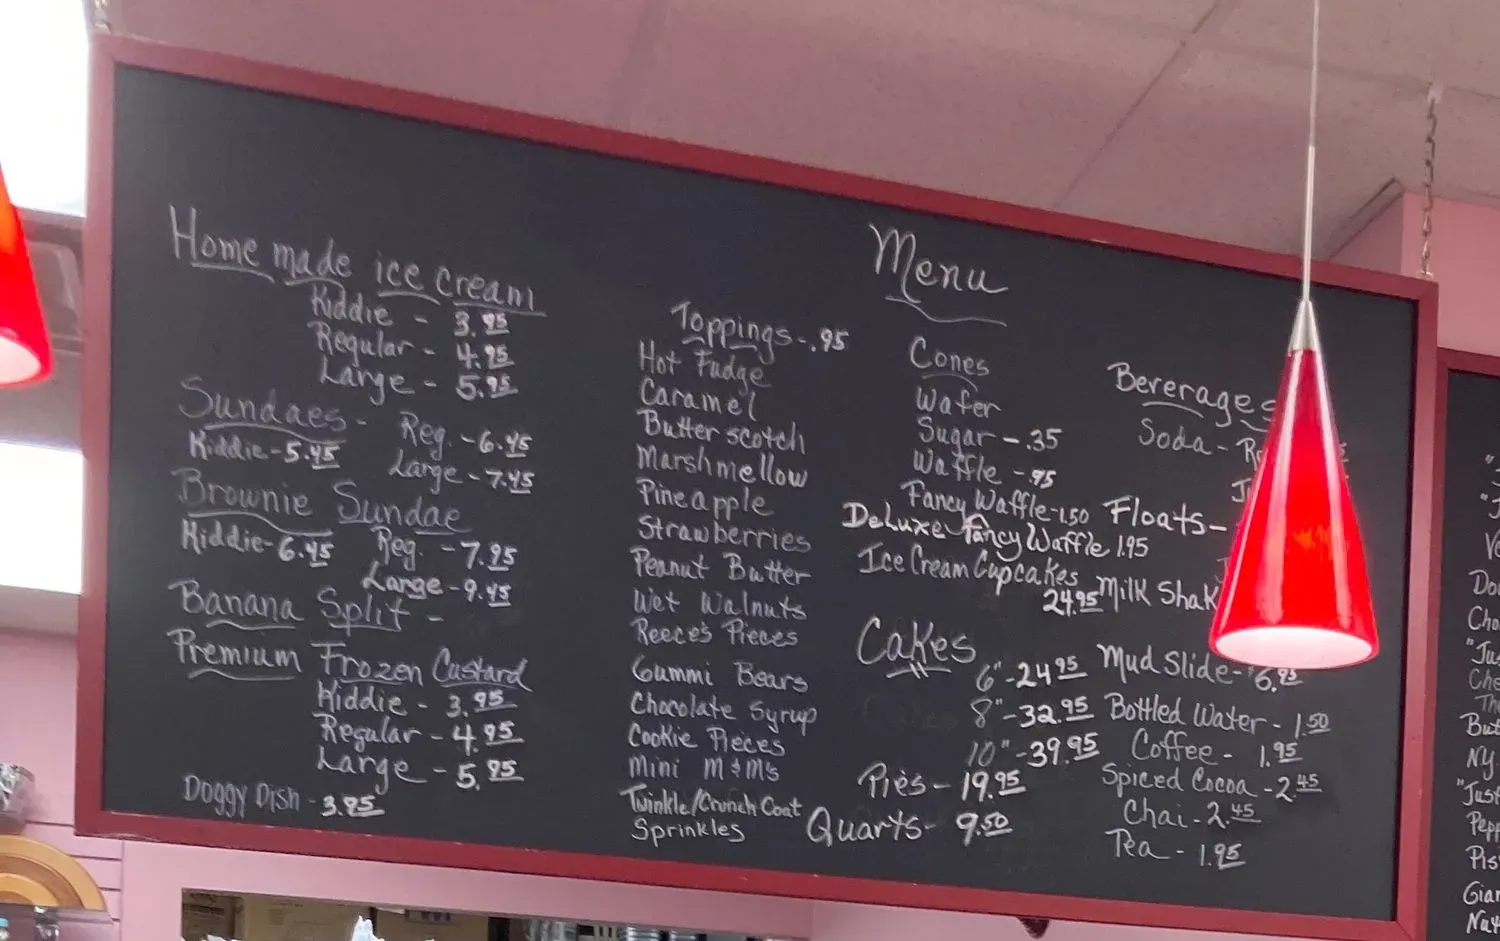 Menu
Home made ice cream
Kiddie - 3.95
Regular - 4.95
Large - 5.95
Sundaes - Reg. - 6.45
Kiddie - 5.45 Large - 7.45
Brownie Sundae
Kiddie - 6.45 Reg. - 7.95
Large - 9.45
Banana Split -
Premium Frozen Custard
Kiddie - 3.95
Regular - 4.95
Large - 5.95
Doggy Dish - 3.95
Toppings - .95
Hot Fudge
Caramel
Butter scotch
Marshmellow
Pineapple
Strawberries
Peanut Butter
Wet Walnuts
Reece's Pieces
Gummi Bears
Chocolate Syrup
Cookie Pieces
Mini M&M's
Twinkle/Crunch Coat
Sprinkles
Cones
Wafer
Sugar - .35
Waffle - .95
Fancy Waffle - 1.50
DeLuxe Fancy Waffle 1.95
Ice Cream Cupcakes
24.95
Cakes
6" - 24.95
8" - 32.95
10" - 39.95
Pies - 19.95
Quarts - 9.50
Beverages
Soda -
Floats -
Milk Shak
Mud Slide - 6.95
Bottled Water - 1.50
Coffee - 1.95
Spiced Cocoa - 2.45
Chai - 2.45
Tea - 1.95